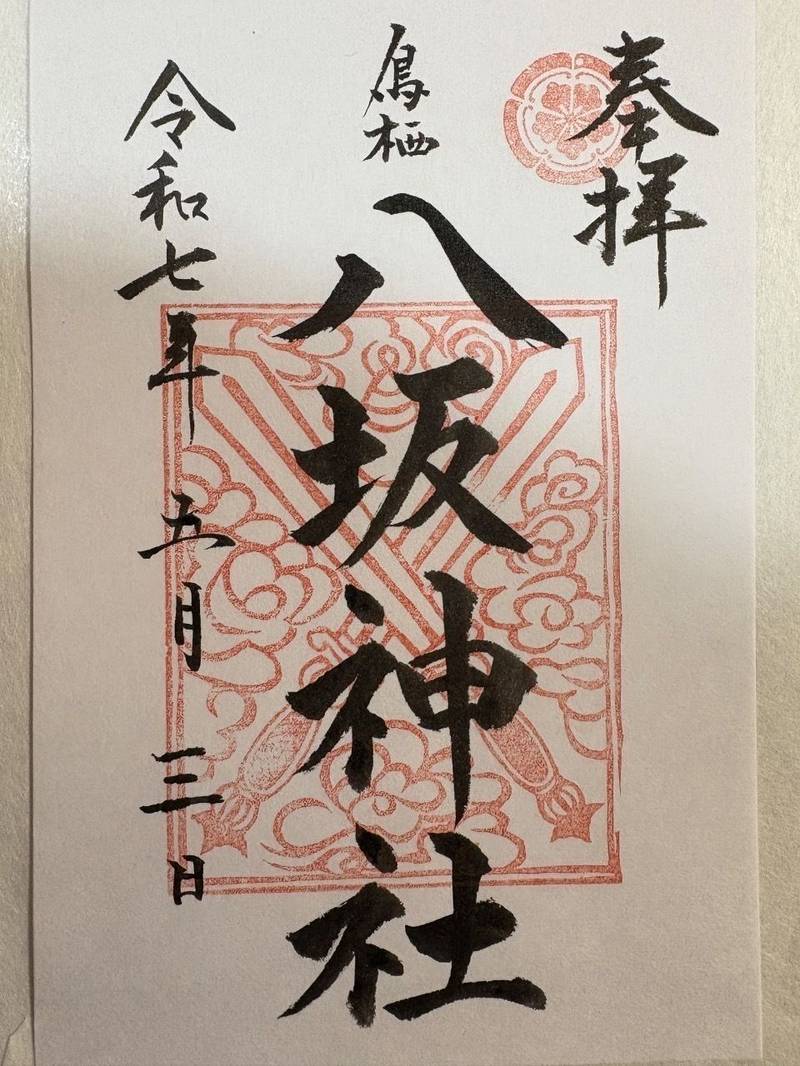 奉拝
鳥栖
八坂神社
令和七年 五月 三日